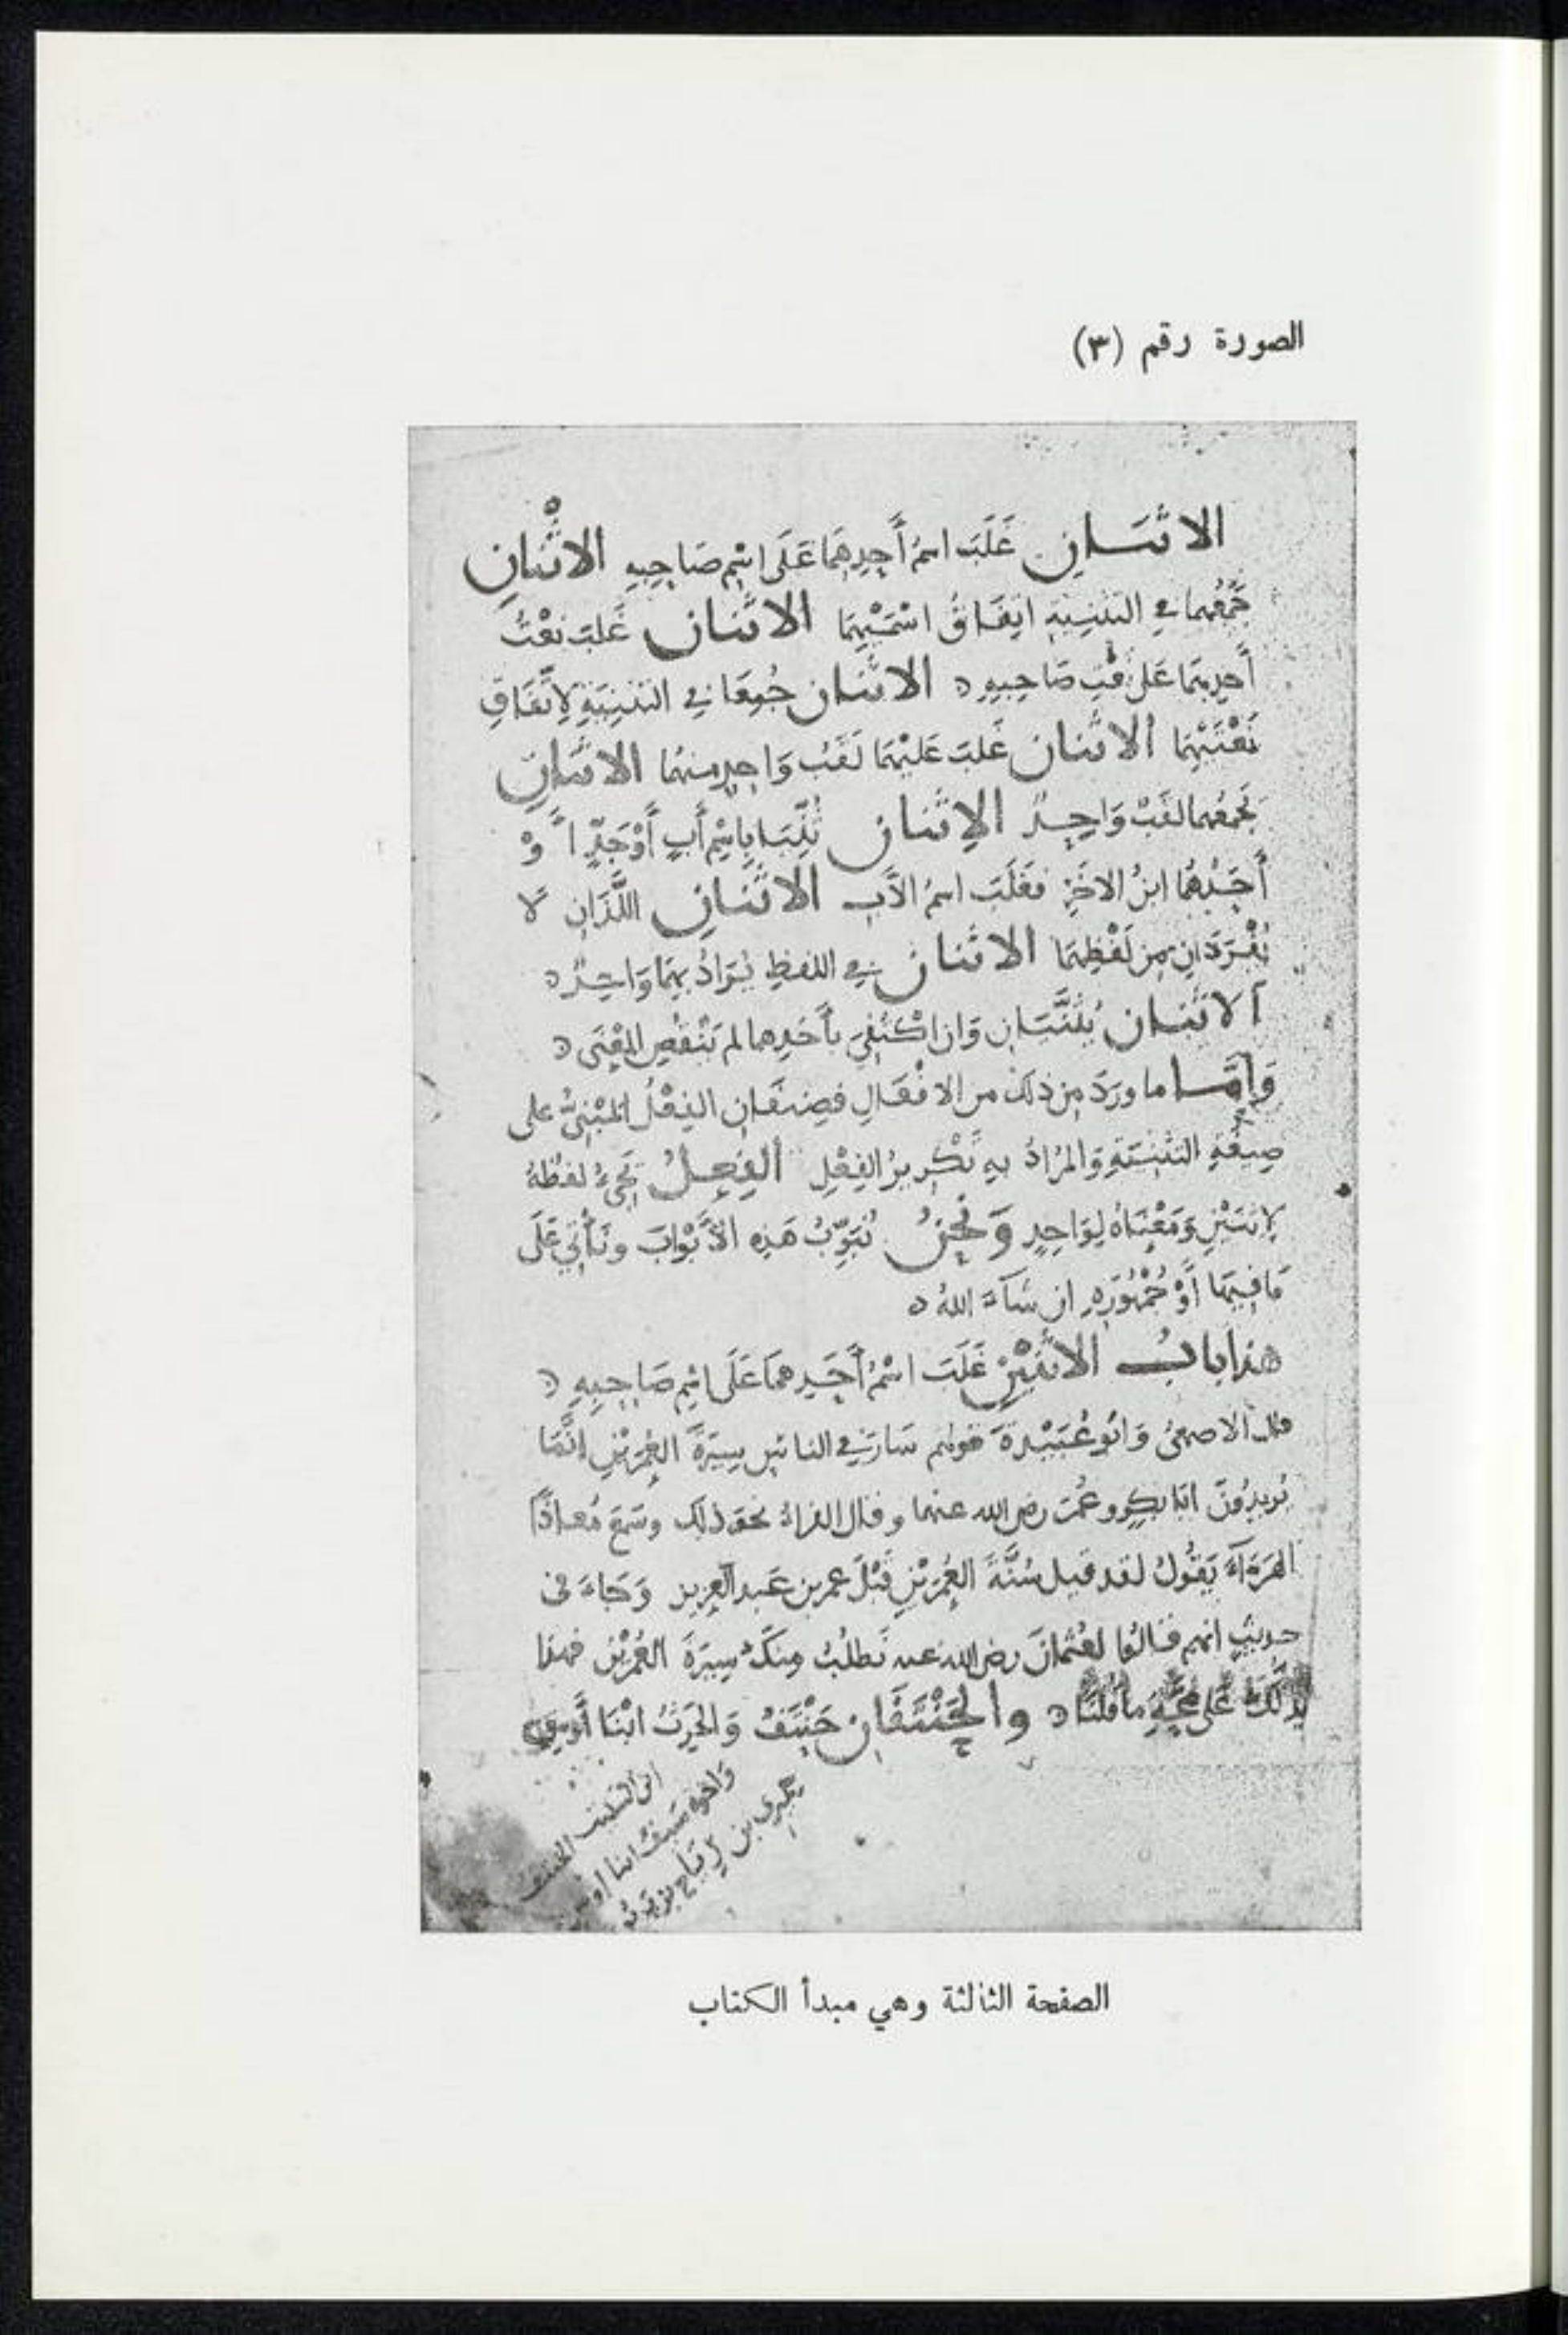 الصورة رقم (٣)
الاثنان غَلَبَ اسمُ أَحِدِهِمَا عَلَى اسْمِ صَاحِبِهِ الاثْنانِ
جَمَعَهما في التثنيةِ اتِفَاقُ اسْمَيْهِمَا الاثنان غَلَبَ نَعْتُ
أَحدِهِمَا عَلى نعْتِ صَاحِبِهِ الاثنان جُمِعَا في التثنيةِ لاِتِّفَاقِ
نَعْتَيْهِمَا الاثنان غَلبَ عَليْهِمَا لَقَبُ وَاحِدٍ منهُمَا الاثنانِ
يَجمعُهما لقَبٌ وَاحِدٌ الاِثنان ثُنِّيَا بِاسْمِ أَبٍ أَوْ جَدٍّ أَوْ
أَحَدُهُمَا ابنُ الاخَرِ فغَلَبَ اسمُ الأَبِ الاثنانِ اللَّذَانِ لا
يُفْرَدَانِ مِن لَفْظِهِمَا الاثنان في اللفظِ يُرَادُ بِهِمَا وَاحِدٌ
الاثنان يُثَنَّيَانِ وَان اكْتُفِيَ بأَحَدِهما لم يَنْقُصِ المَعْنَى
وَأَمَّا ما ورَدَ مِن ذلك من الافْعَالِ فصِنفَانِ الفِعْلُ المَبْنِيُّ على
صِيغَةِ التثنيةِ وَالمُرَادُ بِهِ تَكْرِيرُ الفِعْلِ الفِعلُ يَجِيءُ لفظُهُ
لاِثنَيْنِ وَمَعْنَاهُ لِوَاحِدٍ وَنَحْنُ نُبَوِّبُ هَذِهِ الأَبْوَابَ ونَأْتِي عَلَى
مَا فِيهَا أَوْ جُمْهُورِهِ ان شَآءَ اللهُ
هذا بابُ الاثْنَيْنِ غَلَبَ اسْمُ أَحَدِهِمَا عَلَى اسْمِ صَاحِبِهِ
قال الاصمعىُّ وَابُو عُبَيْدةَ قولهم سَارَ في الناسِ سِيرَةَ العُمَرَيْنِ إِنَّمَا
يُريدُونَ ابَا بكرٍ وعُمَرَ رضى الله عنهما وقال الفراءُ نحوَ ذلك وسَمِعَ مُعاذًا
الهَرَّآءَ يَقُولُ لقد قيل سُنَّةُ العُمَرَيْنِ قَبْلَ عمر بن عَبد العزيز وَجَاءَ فى
حديثٍ انهم قالُوا لعُثمانَ رضى الله عنه نَطلُبُ مِنكَ سِيرَةَ العُمَرَيْنِ فهذا
يدُلُّكَ عَلَى صِحَّةِ مَا قُلنَا والحَنْتَفَانِ حَنْتَفٌ وَالحَرِثُ ابْنَا أَوسِ بن
وَاخوه سَيفٌ ابنا اوس
حِميَرى بن رِيَاح بن يَربُوع
الصفحة الثالثة وهي مبدأ الكتاب